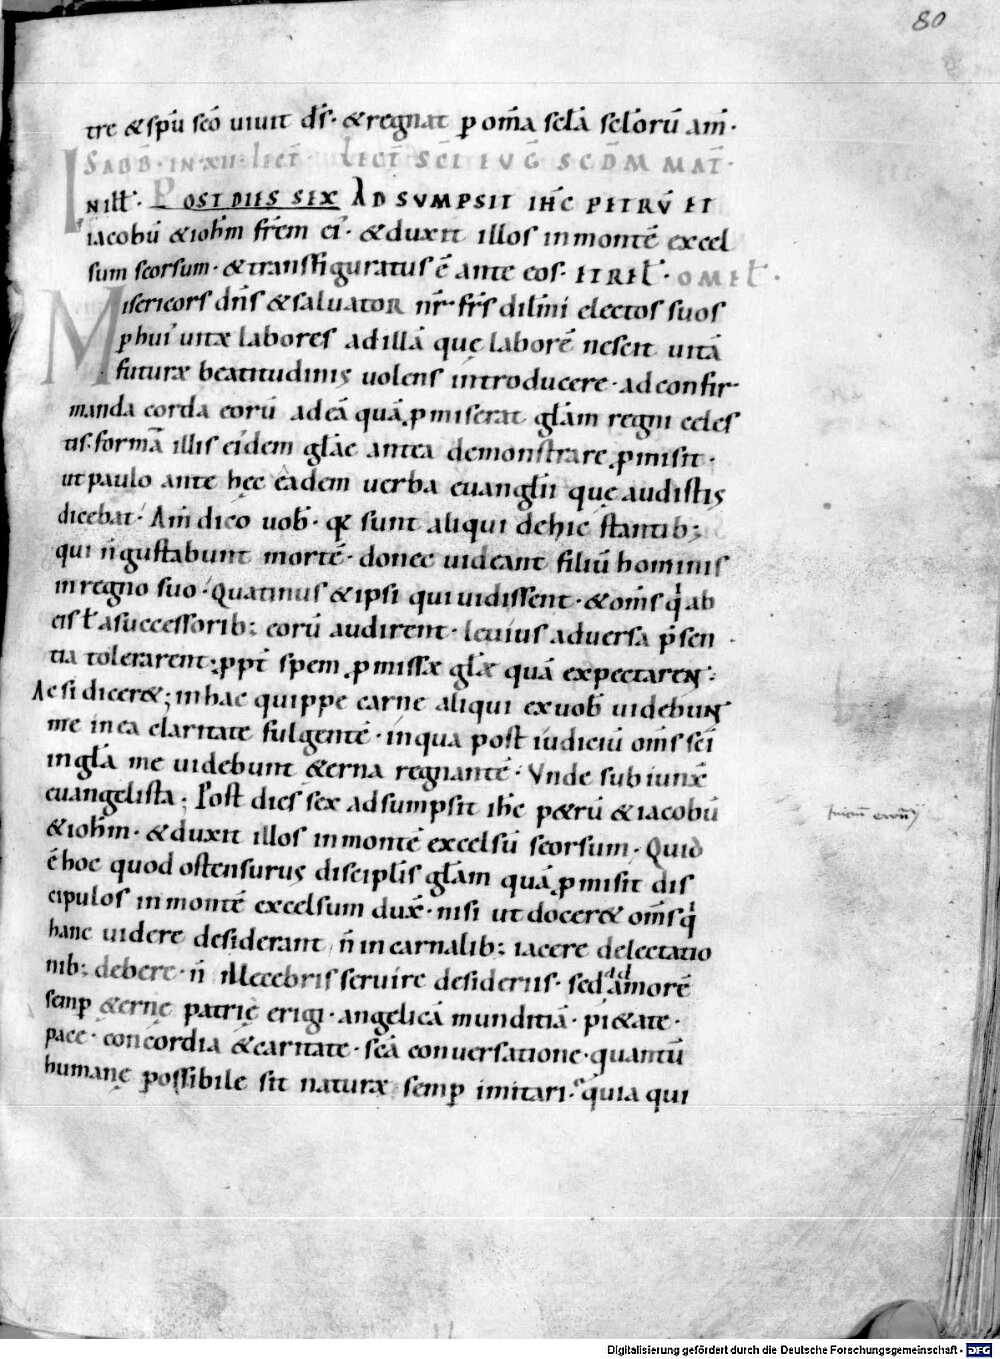 80
tre &spū scō uiuit d̄s· &regnat p om̄a scła scłorū am̄·
SABB̄·IN·XII·Lect̄· Lect̄ SC̄I EUḠ SCD̄M MAT̄·
INiłł· POST DIES SEX ADSUMPSIT IH̄C PETRŪ ET
iacobū &ioh̄m fr̄em ei'· &duxit illos inmontē excel
sum seorsum· &transfiguratus ē ante eos· ET REŁ· OMEŁ·
Misericors dn̄s &saluator nr̄ fr̄s dil̄mi electos suos
phui' uitæ labores adillā quę laborē nescit uitā
futuræ beatitudinis uolens introducere· adconfir
manda corda eorū adeā quā pmiserat głam regni celes
tis· formā illis eidem głae antea demonstrare pmisit·
ut paulo ante hęc eadem uerba euangłii quę audistis
dicebat· Am̄ dico uob̄· qđ sunt aliqui dehic stantib;
qui n̄ gustabunt mortē· donec uideant filiū hominis
inregno suo· Quatinus &ipsi qui uidissent· &om̄s qi ab
eis ł asuccessorib; eorū audirent· leuius aduersa p̄sen
tia tolerarent; ppt̄ spem pmissæ głæ quā expectarent·
Acsi dicer&; inhac quippe carne aliqui exuob̄ uidebunt
me inea claritate fulgentē· inqua post iudiciū om̄s sc̄i
ingłā me uidebunt &erna regnantē· Unde subiunx̄
euangelista; Post dies sex adsumpsit ih̄c p&rū &iacobū
&ioh̄m· &duxit illos inmontē excelsū seorsum· Quid
ē hoc quod ostensurus discipłis głam quā pmisit dis
cipulos inmontē excelsum dux̄· nisi ut docer& om̄s qi
hanc uidere desiderant n̄ incarnalib; iacere delectatio
nib; debere· n̄ illecebris seruire desideriis· sed ad amorē
semp &ernę patrię erigi· angelicā munditiā· pi&ate·
pace· concordia &caritate· scā conuersatione· quantū
humanę possibile sit naturæ semp imitari· quia qui
Digitalisierung gefördert durch die Deutsche Forschungsgemeinschaft - DFG